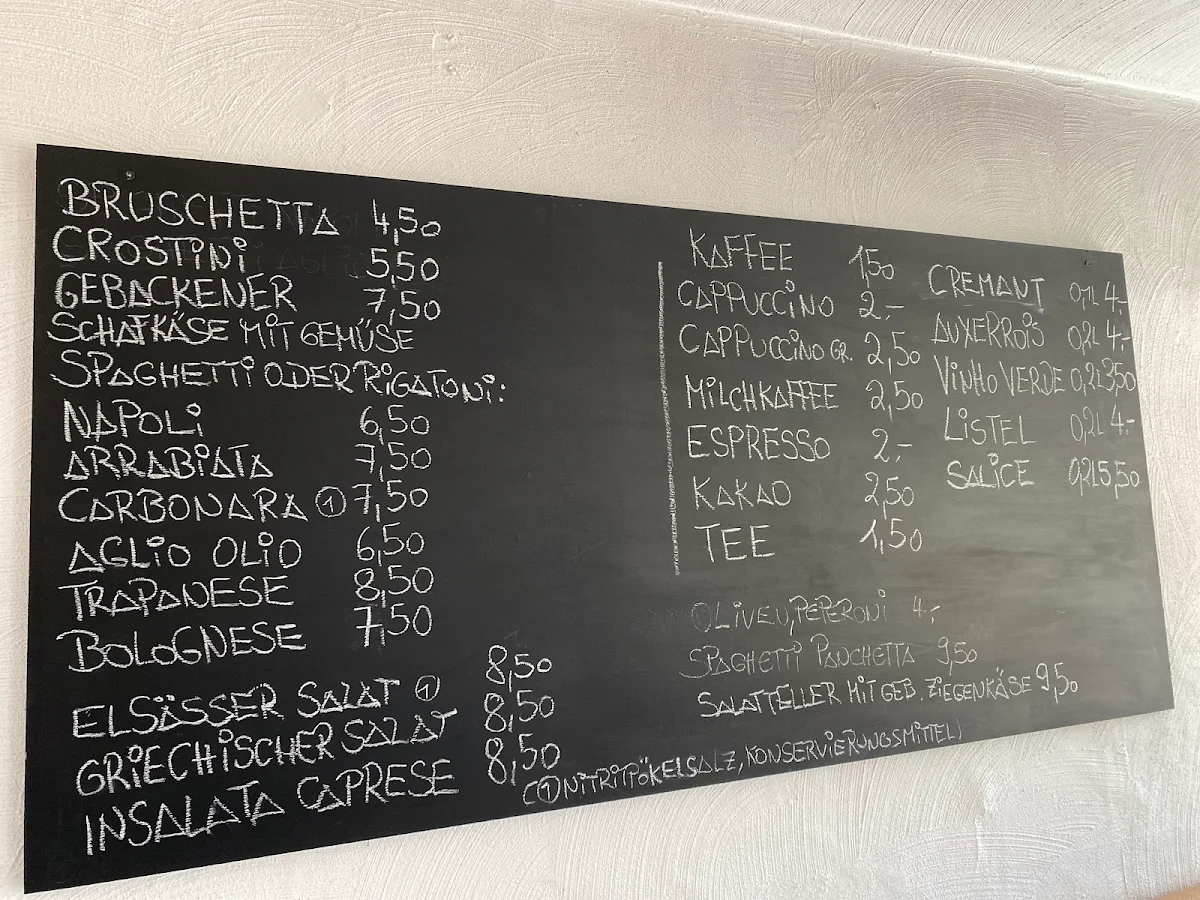 BRUSCHETTA 4,50
CROSTINI 5,50
GEBACKENER 7,50
SCHAFKÄSE MIT GEMÜSE
SPAGHETTI ODER RIGATONI:
NAPOLI 6,50
ARRABIATA 7,50
CARBONARA ① 7,50
AGLIO OLIO 6,50
TRAPANESE 8,50
BOLOGNESE 7,50
ELSÄSSER SALAT ① 8,50
GRIECHISCHER SALAT 8,50
INSALATA CAPRESE 8,50
KAFFEE 1,50
CAPPUCCINO 2.-
CAPPUCCINO GR. 2,50
MILCHKAFFEE 2,50
ESPRESSO 2.-
KAKAO 2,50
TEE 1,50
CREMANT 0,1L 4.-
AUXERROIS 0,2L 4.-
VINHO VERDE 0,2L 3,50
LISTEL 0,2L 4.-
SALICE 0,2L 5,50
OLIVEN, PEPERONI 4.-
SPAGHETTI PANCHETTA 9,50
SALATTELLER MIT GEB. ZIEGENKÄSE 9,50
(① NITRITPÖKELSALZ, KONSERVIERUNGSMITTEL)